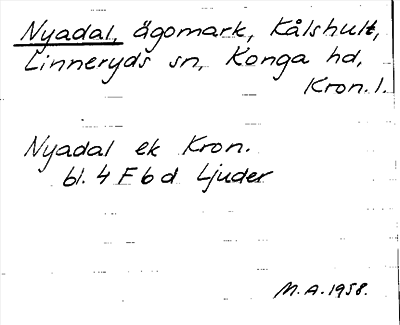 Nyadal, ägomark, Kålshult,
Linneryds sn, Konga hd,
Kron. l.
Nyadal ek Kron.
bl. 4 F 6 d Ljuder
M.A. 1958.